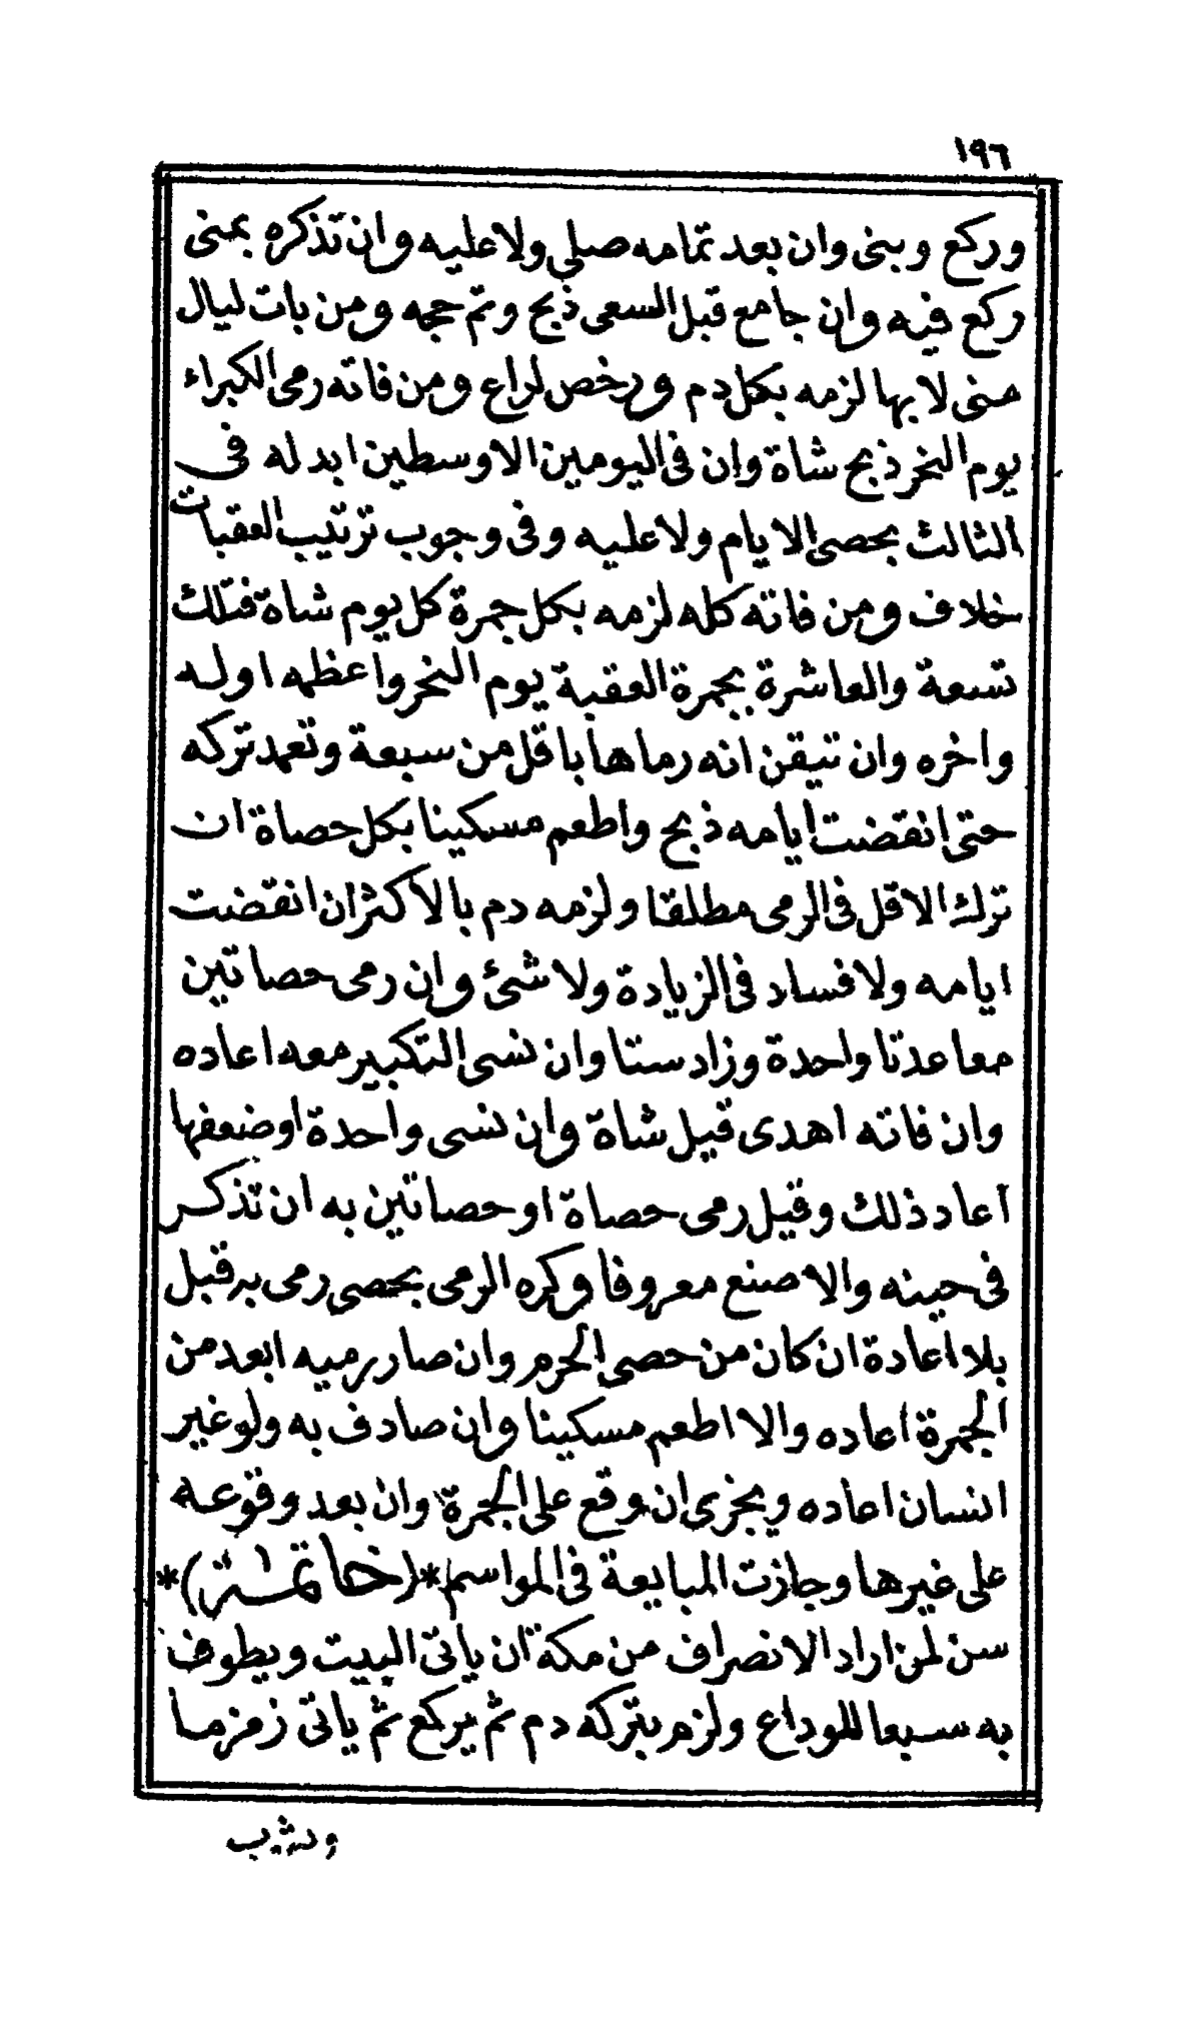 ١٩٦
وركع وبنى وان بعد تمامه صلي ولا عليه وان تذكره بمنى
ركع فيه وان جامع قبل السعى ذبح وتم حجه ومن بات ليال
منى لا بها لزمه بكل دم ورخص لراع ومن فاته رمى الكبراء
يوم النحر ذبح شاة وان فى اليومين الاوسطين ابد له فى
الثالث بحصى الايام ولا عليه وفى وجوب ترتيب العقبات
خلاف ومن فاته كله لزمه بكل جمرة كل يوم شاة فتلك
تسعة والعاشرة بجمرة العقبة يوم النحر واعظمه اوله
واخره وان تيقن انه رماها باقل من سبعة وتعمد تركه
حتى انقضت ايامه ذبح واطعم مسكينا بكل حصاة ان
ترك الاقل فى الرمى مطلقا ولزمه دم بالاكثر ان انقضت
ايامه ولا فساد فى الزيادة ولا شئ وان رمى حصاتين
معا عدتا واحدة وزاد ستا وان نسى التكبير معه اعاده
وان فاته اهدى قيل شاة وان نسى واحدة او ضعفها
اعاد ذلك وقيل رمى حصاة او حصاتين به ان تذكر
فى حينه والا صنع معروفا وكره الرمى بحصى رمى به قبل
بلا اعادة ان كان من حصى الحرم وان صار رميه ابعد من
الجمرة اعاده والا اطعم مسكينا وان صادف به ولو غير
انسان اعاده ويجزى ان وقع على الجمرة وان بعد وقوعه
على غيرها وجازت المبايعة فى المواسم *(خاتمة)*
سن لمن اراد الانصراف من مكة ان ياتى البيت ويطوف
به سبعا للوداع ولزم بتركه دم ثم يركع ثم ياتى زمزما
ويشرب